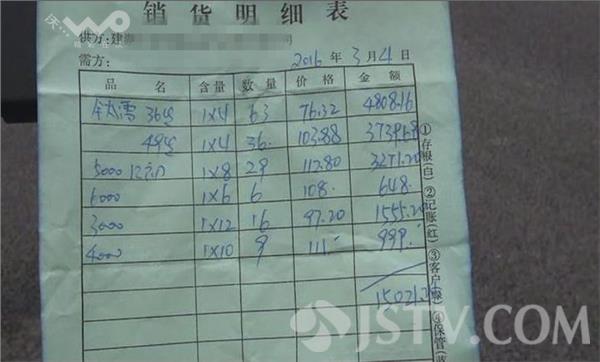 销货明细表
供方: 建
需方: 2016年3月4日
品名 含量 数量 价格 金额
36 1×4 63 76.32 4808.16
49 1×4 36. 103.88 3739.68
5000 1×8 29 112.80 3271.20
6000 1×6 6 108. 648.
3000 1×12 16 97.20 1555.20
4000 1×10 9 111. 999.
15021.24
①存根(白) ②记账(红) ③客户 ④保管
JSTV.COM